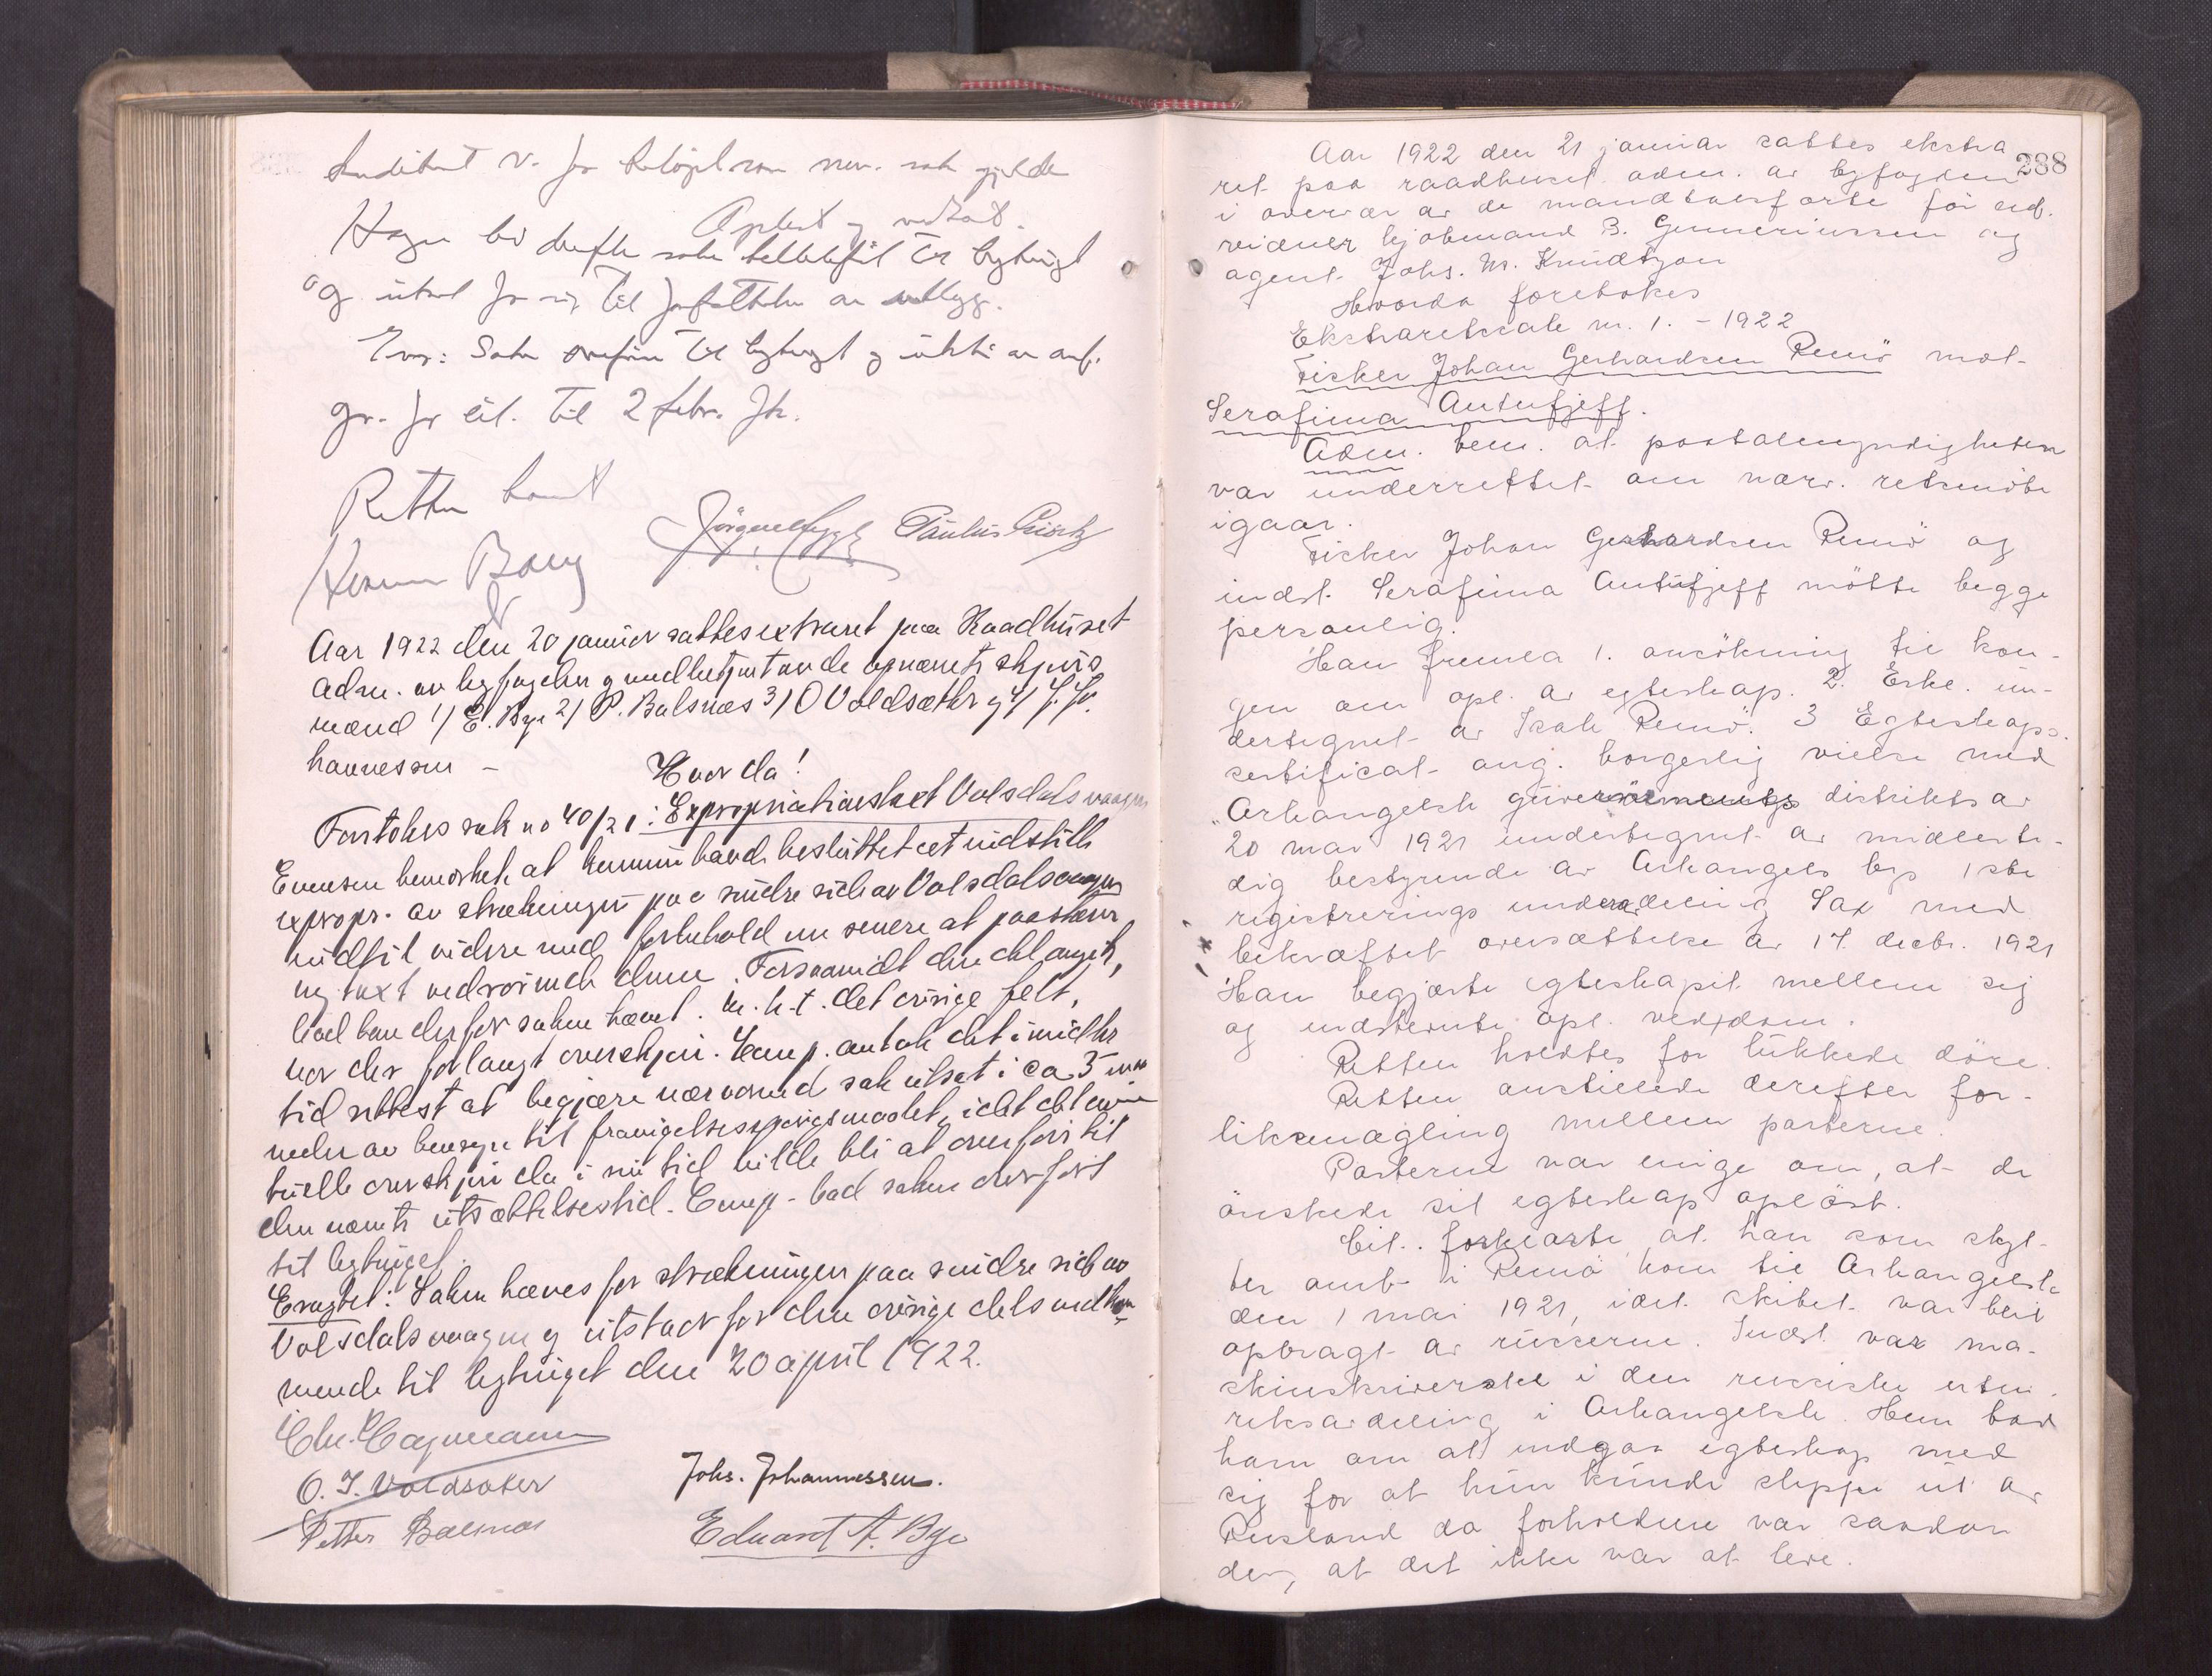 for som nev. sak gjelde
Oplest og vedtat.
Hagen bd derefter saken til bytinget
og utsat for sig til forfattelse av indlegg.
Evag: Saken overføres til bytinget og utstaar av anf.
gr. for cit. til 2 febr. fk.
Retten hævet
Herman Bang
Aar 1922 den 20 januar sattes extraret paa Raadhuset
Adm. av byfogden og medbetjent av de opnævnte skjøns
mænd 1/ E. Bye 2/ P. Balsnes 3/ O Voldsæter og 4/ J. Jo-
hannessen –
Hvorda!
Foretokes sak no 40/21: Expropriationstaxt Volsdalsvaagen
Evensen bemerket at kommunen havde besluttet at indstille
expropr. av strækningen paa søndre side av Volsdalsvaagen
indtil videre med forbehold om senere at paastævne
ny taxt vedrørende denne. Forsaavidt den del angik,
bad han derfor saken hævet. M. h. t. det øvrige felt,
var der forlangt overskjøn. Comp. antok det imidler
tid rettest at begjære nærværende sak utsat i ca 3 maa
neder av hensyn til fravigelsesspørgsmaalet, idet det even
tuelle overskjøn da i sin tid vilde bli at overføre til
den nævnte utsættelsestid. Comp. bad saken overført
til bytinget.
Eragtet: Saken hæves for strækningen paa søndre side av
Volsdalsvaagen og utstaar for den øvrige dels vedkom-
mende til bytinget den 20 april 1922.
O. J. Voldsæter
Johs. Johannessen.
Petter Balsnes
Edvard A. Bye
288
Aar 1922 den 21 januar sattes ekstra
ret paa raadhuset adm. av byfogden
i overvær av de mandtalsførte før edf.
vidner kjøbmand B. Gunneriussen og
agent Johs. M. Knudtzon
Hvorda foretokes
Ekstraretssak nr. 1. – 1922
Fisker Johan Gerhardsen Remö mot
Serafima Antufjeff.
Adm. bem. at paatalemyndigheten
var underrettet om nærv. retsmöte
igaar.
Fisker Johan Gerhardsen Remö og
indst. Serafima Antufjeff mötte begge
personlig.
Han fremla 1. ansökning til kon-
gen om opl. av egteskap. 2. Erkl. un-
dertegnet av Isak Remö. 3 Egteskaps-
certificat ang. borgerlig vielse med
"Arkangelsk guvernements distrikts av
20 mai 1921 undertegnet av midlerti-
dig bestyrende av Arkangels by 1ste
registrerings underavdeling Sax med
bekræftet oversættelse av 17. decbr. 1921
Han begjærte egteskapet mellem sig
og indstevnte opl. ved dom.
Retten holdtes for lukkede döre.
Retten anstillede derefter for-
liksmægling mellem parterne.
Parterne var enige om, at de
önskede sit egteskap oplöst.
Cit. forklarte at han som skyt-
ter omb. i Remö kom til Arkangelsk
den 1 mai 1921, idet skibet var blit
opbragt av russerne. Indst. var ma-
skinskriverske i den russiske uten-
riksavdeling i Arkangelsk. Hun bad
ham om at indgaa egteskap med
sig for at hun kunde slippe ut av
Rusland da forholdene var saadan
der, at det ikke var at leve.